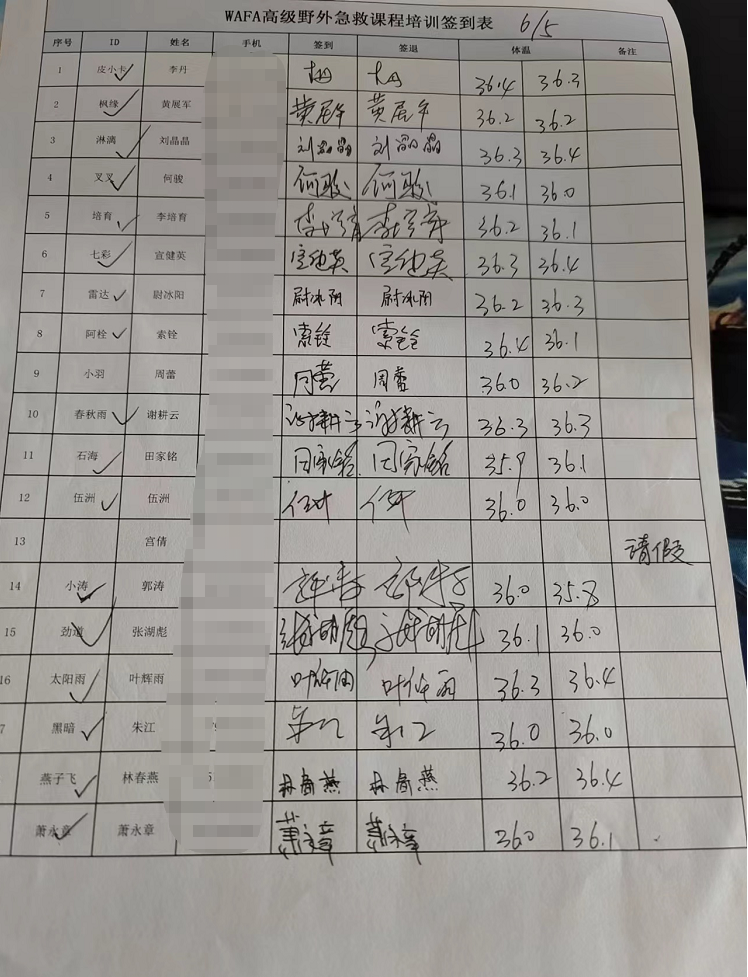 WAFA高级野外急救课程培训签到表 6/5
序号 ID 姓名 手机 签到 签退 体温 备注
1 皮小卡 李丹 36.4 36.3
2 枫缘 黄展军 黄展军 黄展军 36.2 36.2
3 淋漓 刘晶晶 刘晶晶 刘晶晶 36.3 36.4
4 叉叉 何骏 何骏 何骏 36.1 36.0
5 培育 李培育 李培育 李培育 36.2 36.1
6 七彩 宣健英 宣健英 宣健英 36.3 36.4
7 雷达 尉冰阳 尉冰阳 尉冰阳 36.2 36.3
8 阿栓 索铨 索铨 索铨 36.4 36.1
9 小羽 周蕾 周蕾 周蕾 36.0 36.2
10 春秋雨 谢耕云 谢耕云 谢耕云 36.3 36.3
11 石海 田家铭 田家铭 田家铭 35.9 36.1
12 伍洲 伍洲 36.0 36.0
13 宫倩 请假
14 小涛 郭涛 郭涛 郭涛 36.0 35.8
15 劲道 张湖彪 36.1 36.0
16 太阳雨 叶辉雨 叶辉雨 叶辉雨 36.3 36.4
7 黑暗 朱江 朱江 朱江 36.0 36.0
燕子飞 林春燕 5 林春燕 林春燕 36.2 36.4
萧永章 萧永章 萧永章 萧永章 36.0 36.1